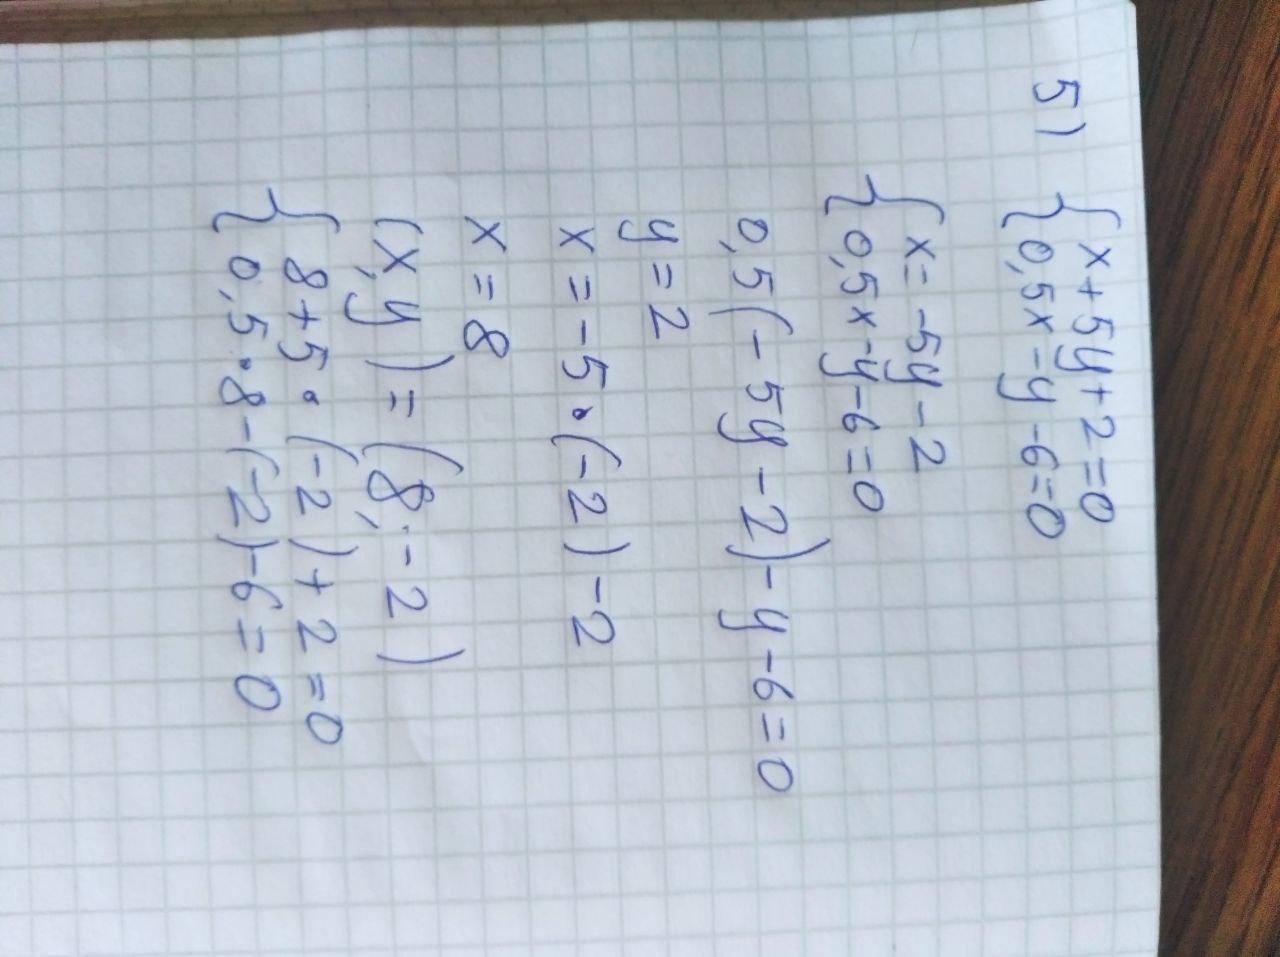 5) { x + 5y + 2 = 0
{ 0,5x - y - 6 = 0
{ x = -5y - 2
{ 0,5x - y - 6 = 0
0,5(-5y - 2) - y - 6 = 0
y = 2
x = -5 · (-2) - 2
x = 8
(x, y) = (8; -2)
{ 8 + 5 · (-2) + 2 = 0
{ 0,5 · 8 - (-2) - 6 = 0